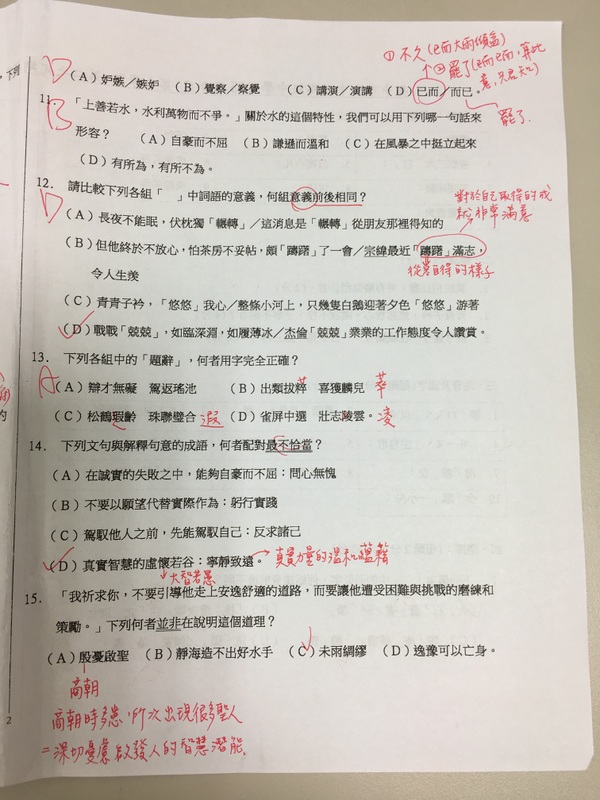 ①不久(已而大雨傾盆)
②罷了(已而已而,算此意,只君知)
D
(A)妒嫉/嫉妒 (B)覺察/察覺 (C)講演/演講 (D)已而/而已。
罷了.
11. 「上善若水,水利萬物而不爭。」關於水的這個特性,我們可以用下列哪一句話來
B
形容? (A)自豪而不屈 (B)謙遜而溫和 (C)在風暴之中挺立起來
(D)有所為,有所不為。
12. 請比較下列各組「 」中詞語的意義,何組意義前後相同?
D
對於自己取得的成就非常滿意
(A)長夜不能眠,伏枕獨「輾轉」/這消息是「輾轉」從朋友那裡得知的
(B)但他終於不放心,怕茶房不妥帖,頗「躊躇」了一會/宗緯最近「躊躇」滿志,
令人生羨
從容自得的樣子
(C)青青子衿,「悠悠」我心/整條小河上,只幾隻白鷺迎著夕色「悠悠」游著
(D)戰戰「兢兢」,如臨深淵,如履薄冰/杰倫「兢兢」業業的工作態度令人讚賞。
13. 下列各組中的「題辭」,何者用字完全正確?
A
(A)辯才無礙 駕返瑤池 (B)出類拔粹 喜獲麟兒 萃
(C)松鶴瑕齡 珠聯璧合 遐 (D)雀屏中選 壯志陵雲。凌
14. 下列文句與解釋句意的成語,何者配對最不恰當?
(A)在誠實的失敗之中,能夠自豪而不屈:問心無愧
(B)不要以願望代替實際作為:躬行實踐
(C)駕馭他人之前,先能駕馭自己:反求諸己
(D)真實智慧的虛懷若谷:寧靜致遠。→真實力量的溫和蘊藉
大智若愚
15. 「我祈求你,不要引導他走上安逸舒適的道路,而要讓他遭受困難與挑戰的磨練和
策勵。」下列何者並非在說明這個道理?
(A)殷憂啟聖 (B)靜海造不出好水手 (C)未雨綢繆 (D)逸豫可以亡身。
商朝
商朝時多患,所以出現很多聖人
=深切憂慮啟發人的智慧潛能.
2